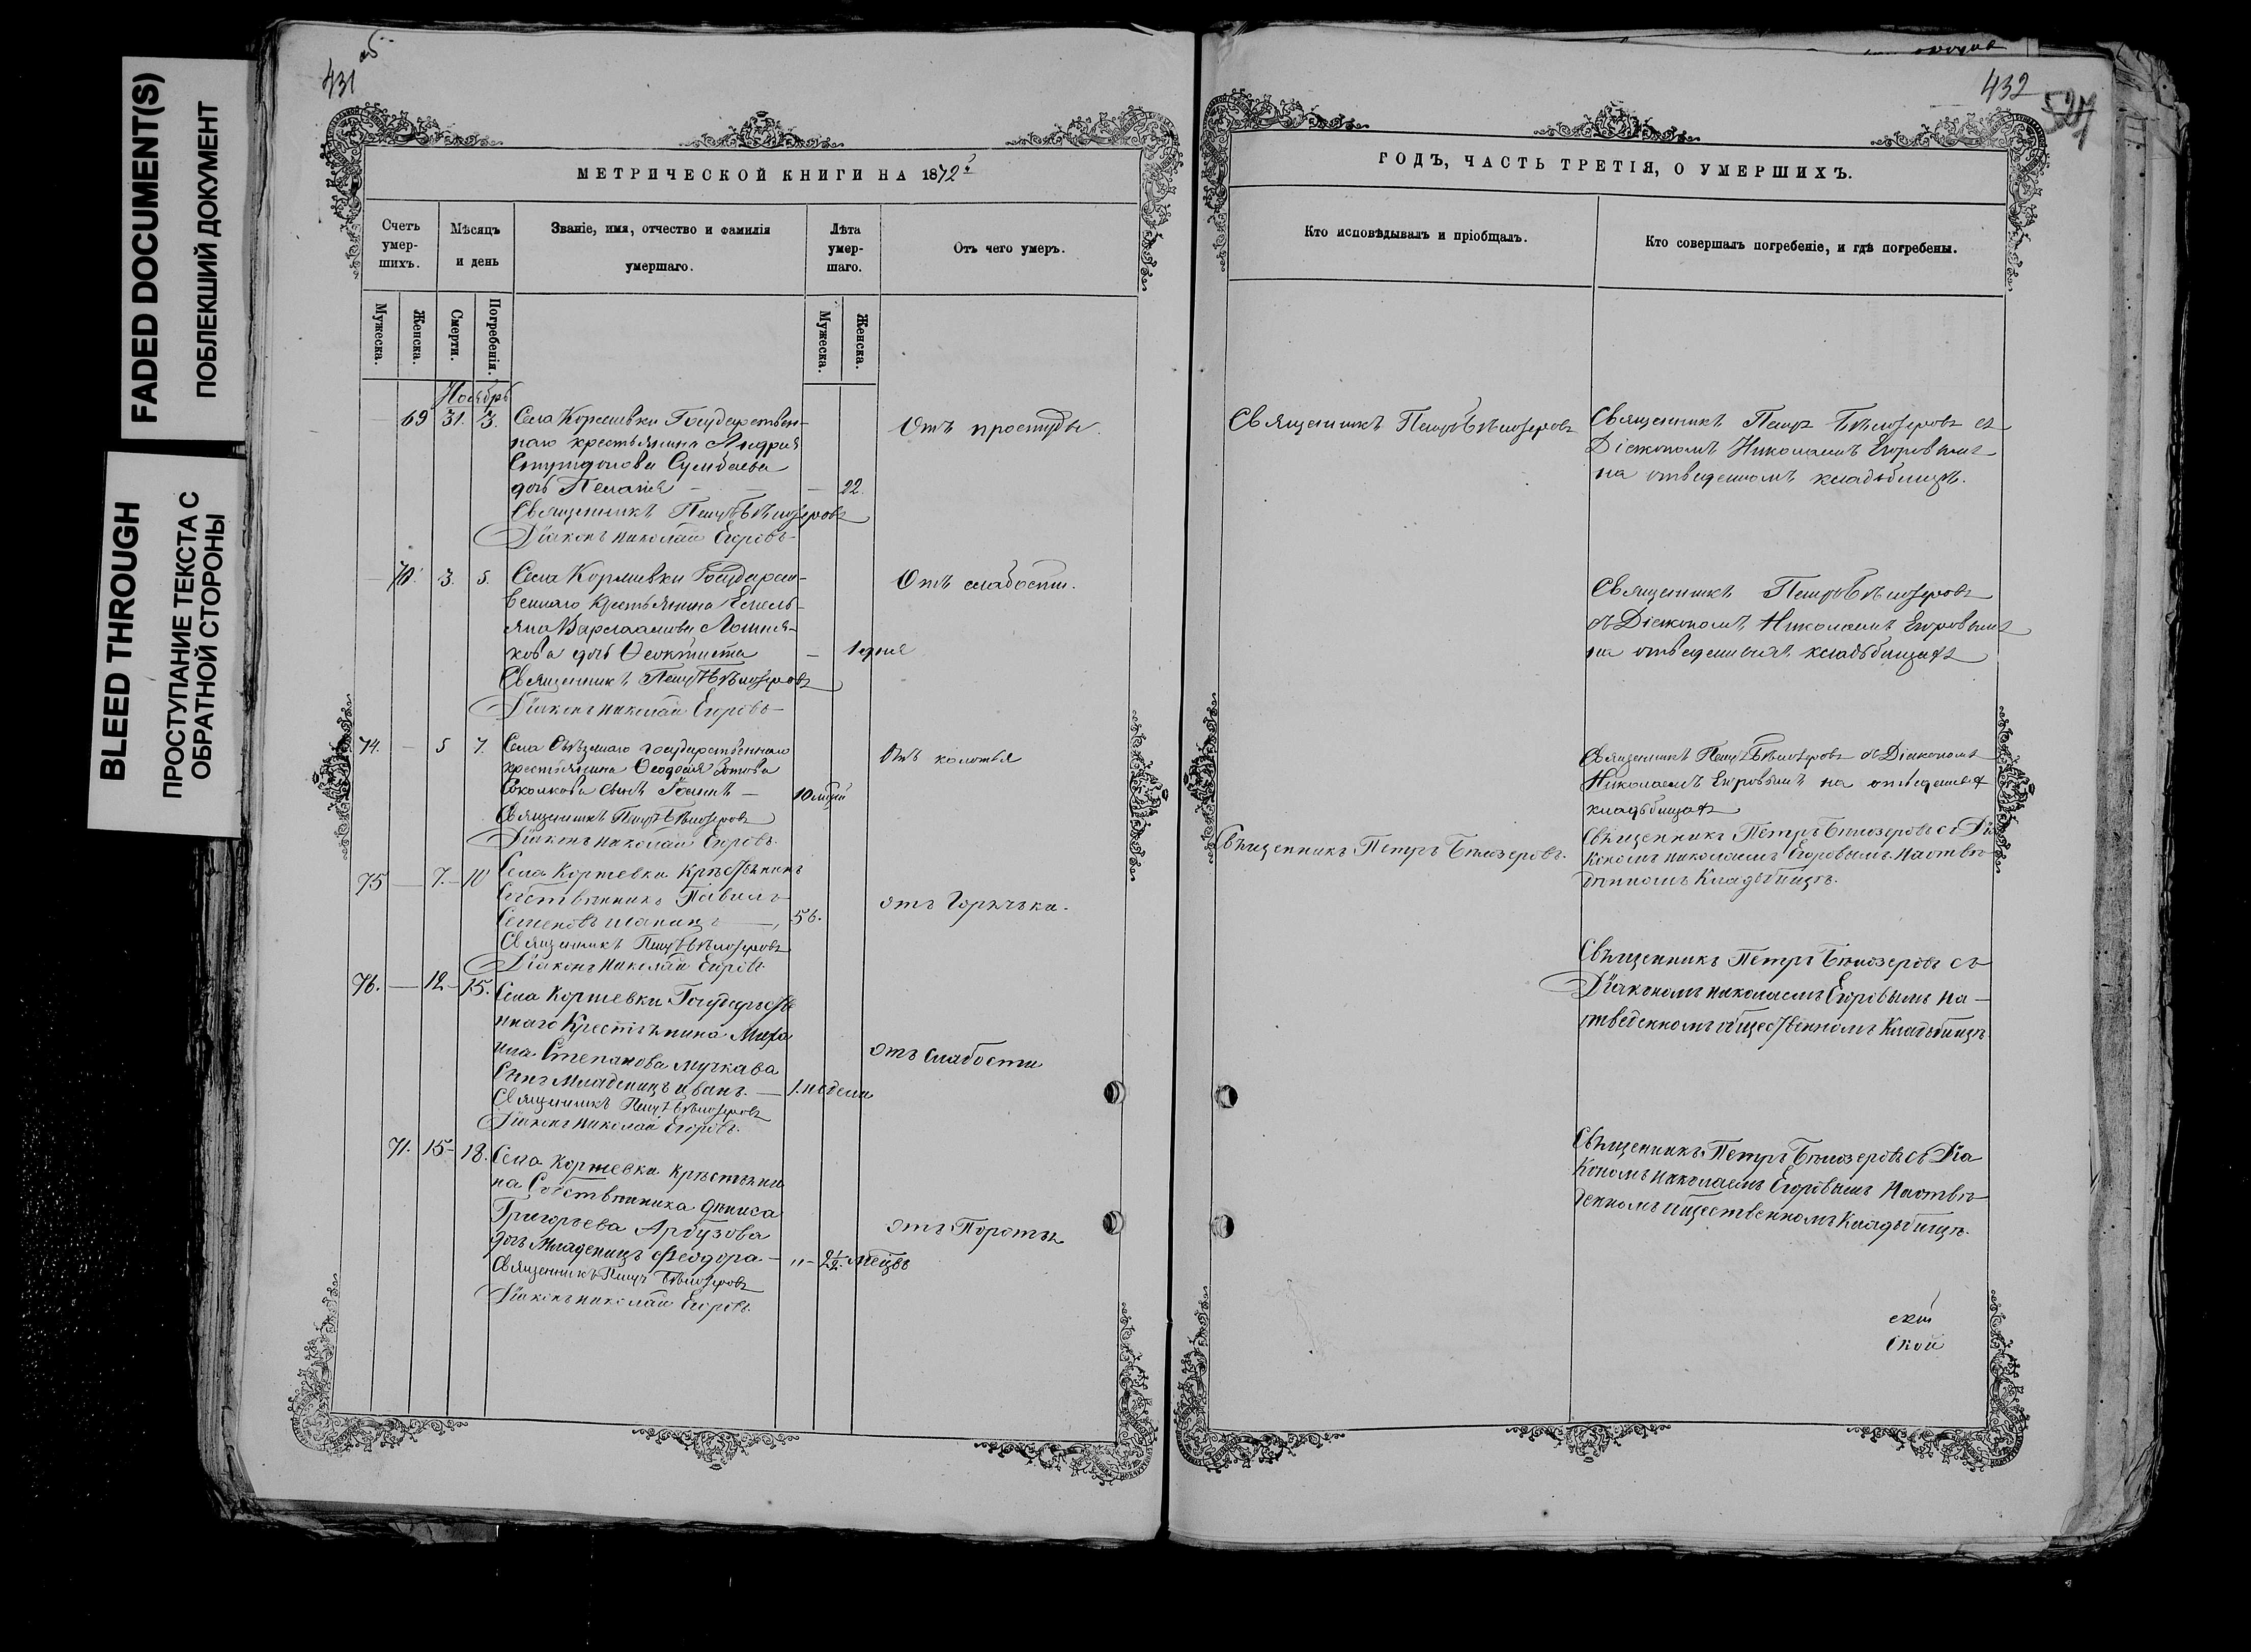 FADED DOCUMENT(S)
ПОБЛЕКШИЙ ДОКУМЕНТ
BLEED THROUGH
ПРОСТУПАНИЕ ТЕКСТА С
ОБРАТНОЙ СТОРОНЫ
431
МЕТРИЧЕСКОЙ КНИГИ НА 1872й
Счетъ умер- шихъ.
Мѣсяцъ и день
Званіе, имя, отчество и фамилія умершаго.
Лѣта умер- шаго.
Отъ чего умеръ.
Мужеска.
Женска.
Смерти.
Погребенія.
Мужеска.
Женска.
Ноябрь
69 31. 3. Села Коржевки Государствен-
наго крестьянина Андрея
Сумбаева
дочь Пелагія — 22.
Отъ простуды.
Священникъ Петръ Бѣлозеровъ
Діаконъ Николай Егоровъ
70. 3. 5. Села Коржевки Государст-
веннаго Крестьянина Емель-
яна Варлаамова
кова дочь Ѳеоктиста — 1 дня
Отъ слабости.
Священникъ Петръ Бѣлозеровъ
Діаконъ Николай Егоровъ
74. — 5 7. Села государственнаго
крестьянина Ѳеодосія Зотова
сынъ — 10 лѣтъ
Отъ колотья
Священникъ Петръ Бѣлозеровъ
Діаконъ Николай Егоровъ.
75 — 7. — 10 Села Коржевки Крѣстьянинъ
Собственникъ Павилъ
Семеновъ — 56.
отъ Горячьки.
Священникъ Петръ Бѣлозеровъ
Діаконъ Николай Егоровъ.
76. — 12 — 15. Села Коржевки Государьстве
ннаго Крестьянина Миха
ила Степанова Мучкаева
Сынъ Младенецъ Иванъ. — 1. недели
отъ Слабости
Священникъ Петръ Бѣлозеровъ
Діаконъ Николай Егоровъ.
71. 15 — 18. Села Коржевки Крѣстьяни
на Собственника Дениса
Григорьева Арбузова
дочь Младенецъ Феодора — 2½. мѣсцъ
отъ
Священникъ Петръ Бѣлозеровъ
Діаконъ Николай Егоровъ.
432
527
ГОДЪ, ЧАСТЬ ТРЕТІЯ, О УМЕРШИХЪ.
Кто исповѣдывалъ и пріобщалъ.
Кто совершалъ погребеніе, и гдѣ погребены.
Священникъ Петръ Бѣлозеровъ
Священникъ Петръ Бѣлозеровъ съ
Діакономъ Николаемъ Егоровымъ
на отведенномъ кладбищѣ.
Священникъ Петръ Бѣлозеровъ
съ Діакономъ Николаемъ Егоровымъ
на отведенныхъ кладьбищахъ
Священникъ Петръ Бѣлозеровъ съ Діакономъ
Николаемъ Егоровымъ на отведеныхъ
кладьбищахъ
Священникъ Петръ Бѣлозеровъ.
Священникъ Петръ Бѣлозеровъ съ Діа
кономъ Николаемъ Егоровымъ На отве
денномъ Кладьбищѣ.
Священникъ Петръ Бѣлозеровъ съ
Діакономъ Николаемъ Егоровымъ на
отведенномъ общественномъ Кладьбищѣ
Священникъ Петръ Бѣлозеровъ съ Діа
Кономъ Николаемъ Егоровымъ На отве
денномъ общественномъ Кладьбищѣ.
ской